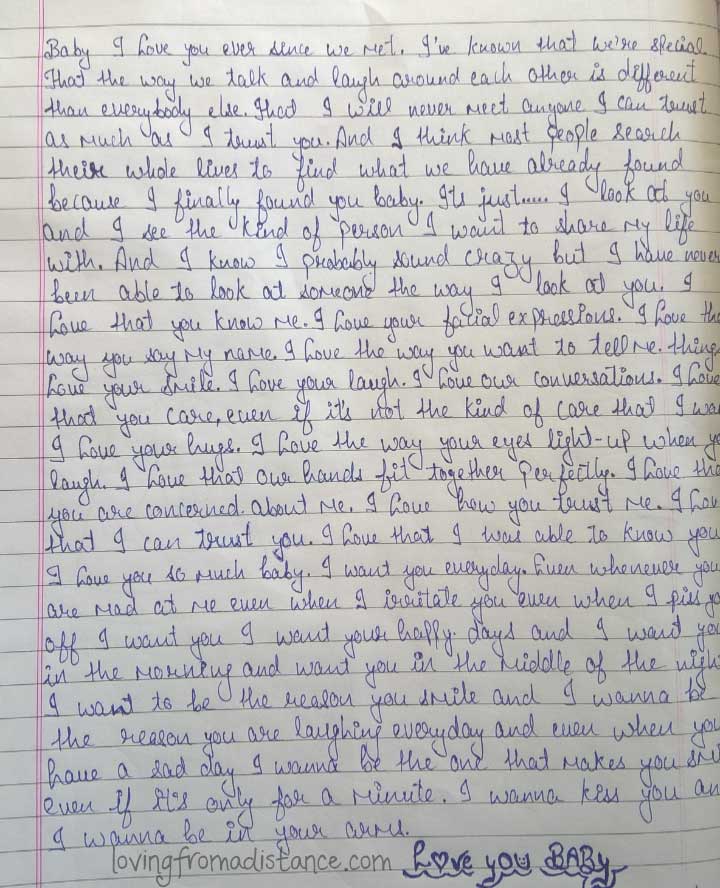 Baby I Love you ever sence we met. I've known that we're special.
That the way we talk and laugh around each other is different
than everybody else. That I will never meet anyone I can trust
as much as I trust you. And I think most people search
their whole lives to find what we have already found
because I finally found you baby. Its just..... I look at you
and I see the kind of person I want to share my life
with. And I know I probably sound crazy but I have never
been able to look at someone the way I look at you. I
Love that you know me. I Love your facial expressions. I Love the
way you say my name. I Love the way you want to tell me. thing
Love your smile. I Love your laugh. I Love our conversations. I Love
that you care, even if it's not the kind of care that I wa
I Love your hugs. I Love the way your eyes light-up when yo
laugh. I Love that our hands fit together perfectly. I Love tha
you are concerned about me. I Love how you trust me. I Lov
that I can trust you. I Love that I was able to know you
I Love you so much baby. I want you everyday. Even whenever you
are mad at me even when I irritate you even when I piss yo
off I want you I want your happy days and I want you
in the morning and want you in the middle of the nigh
I want to be the reason you smile and I wanna be
the reason you are laughing everyday and even when you
have a sad day I wanna be the one that makes you smi
even if it's only for a minute. I wanna kiss you an
I wanna be in your arms.
lovingfromadistance.com Love you BABY